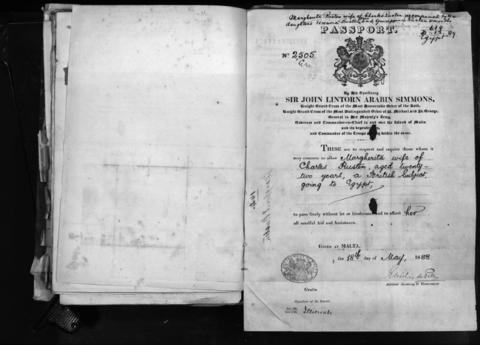 Margherita Preston wife of Charles Preston accompanied by her
daughters
PASSPORT.
No 2505
By His Excellency
SIR JOHN LINTORN ARABIN SIMMONS,
Knight Grand Cross of the Most Honorable Order of the Bath,
Knight Grand Cross of the Most Distinguished Order of St. Michael and St. George,
General in Her Majesty's Army,
Governor and Commander-in-Chief in and over the Island of Malta
and its Dependencies
and Commander of the Troops serving within the same.
THESE are to request and require those whom it
may concern to allow Margherita wife of
Charles Preston, aged twenty-
two years, a British Subject,
going to Egypt,
to pass freely without let or hindrance and to afford her
all needful Aid and Assistance.
GIVEN at MALTA,
the 18th day of May, 1888
Assistant Secretary to Government
Gratis
Signature of the Bearer.
Illiterate